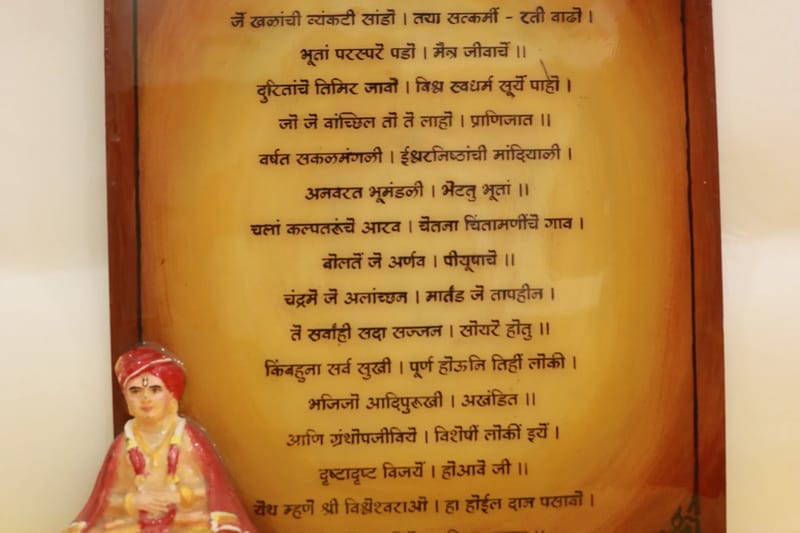 जें खळांची व्यंकटी सांडो । तया सत्कर्मी - रती वाढो ।
भूतां परस्परे पडो । मैत्र जीवाचें ॥
दुरितांचे तिमिर जावो । विश्व स्वधर्म सूर्ये पाहो ।
जो जे वांच्छिल तो ते लाहो । प्राणिजात ॥
वर्षत सकळमंगळी । ईश्वरनिष्ठांची मांदियाळी ।
अनवरत भूमंडळी । भेटतु भूतां ॥
चलां कल्पतरूंचे आरव । चेतना चिंतामणींचे गाव ।
बोलतें जे अर्णव । पीयूषाचे ॥
चंद्रमे जे अलांच्छन । मार्तंड जे तापहीन ।
ते सर्वांही सदा सज्जन । सोयरे होतु ॥
किंबहुना सर्व सुखी । पूर्ण होऊनि तिहीं लोकी ।
भजिजो आदिपुरूखी । अखंडित ॥
आणि ग्रंथोपजीविये । विशेषीं लोकीं इयें ।
दृष्टादृष्ट विजयें । होआवे जी ॥
येथ म्हणे श्री विश्वेश्वराओ । हा होईल दान पसावो ।